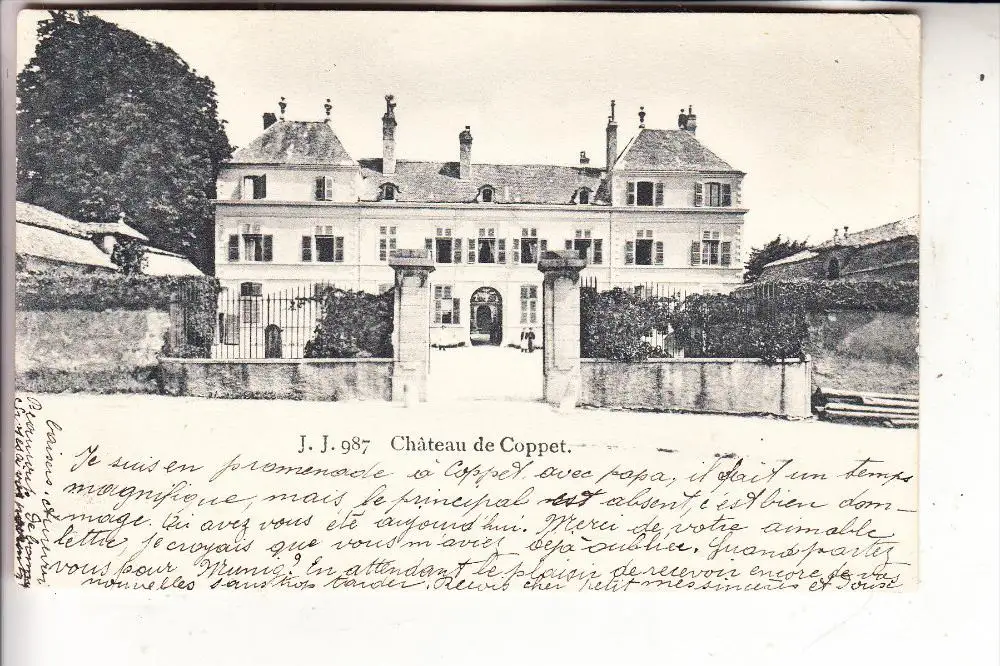 J. J. 987 Château de Coppet.
Je suis en promenade à Coppet avec papa, il fait un temps
magnifique, mais, le principal est absent, c'est bien dom-
mage. Où avez vous été aujourd'hui. Merci de votre aimable
lettre, je croyais que vous m'aviez déjà oubliée. Quand partez
vous pour Munig? En attendant le plaisir de recevoir encore de vos
nouvelles sans trop tarder. Recois cher petit mes sincères et
baisers.